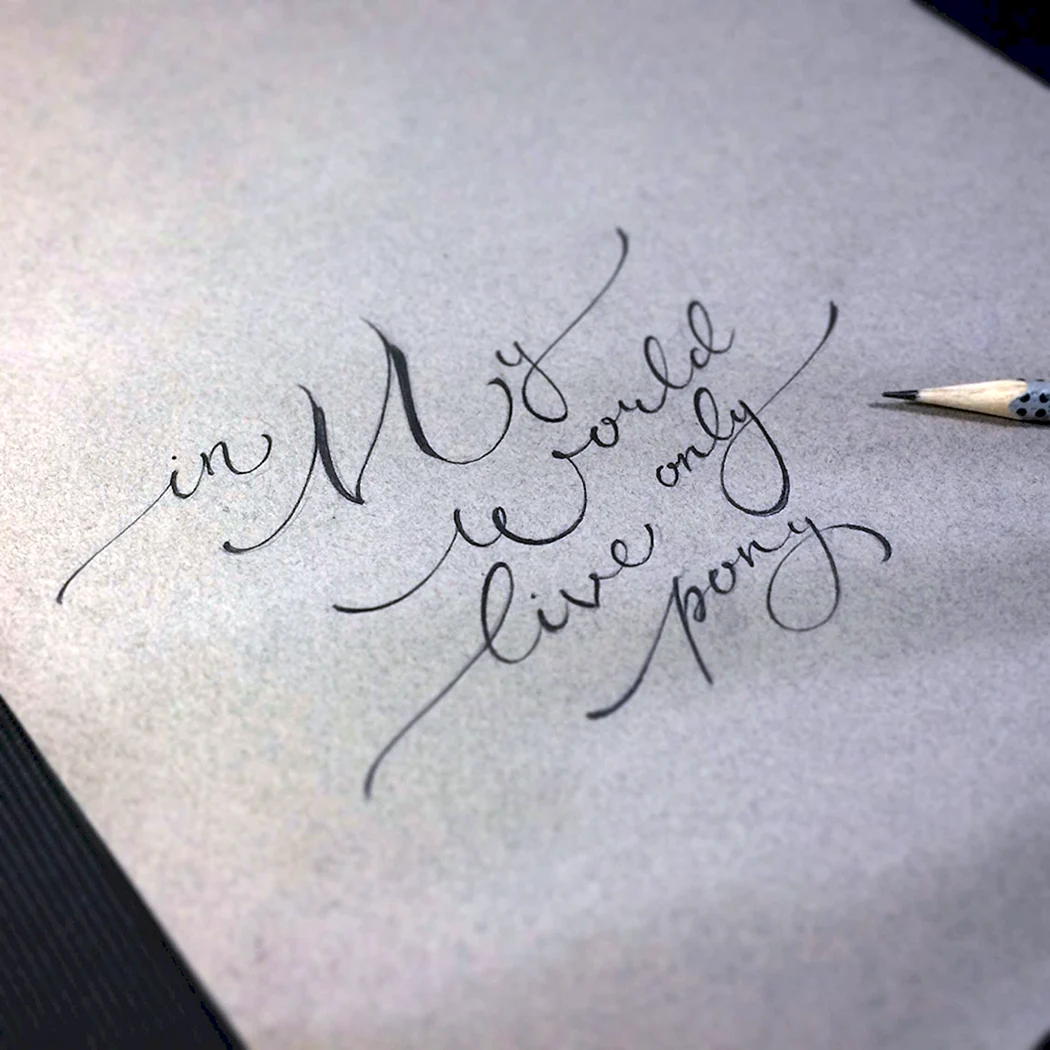 in My
world
only
live
pony